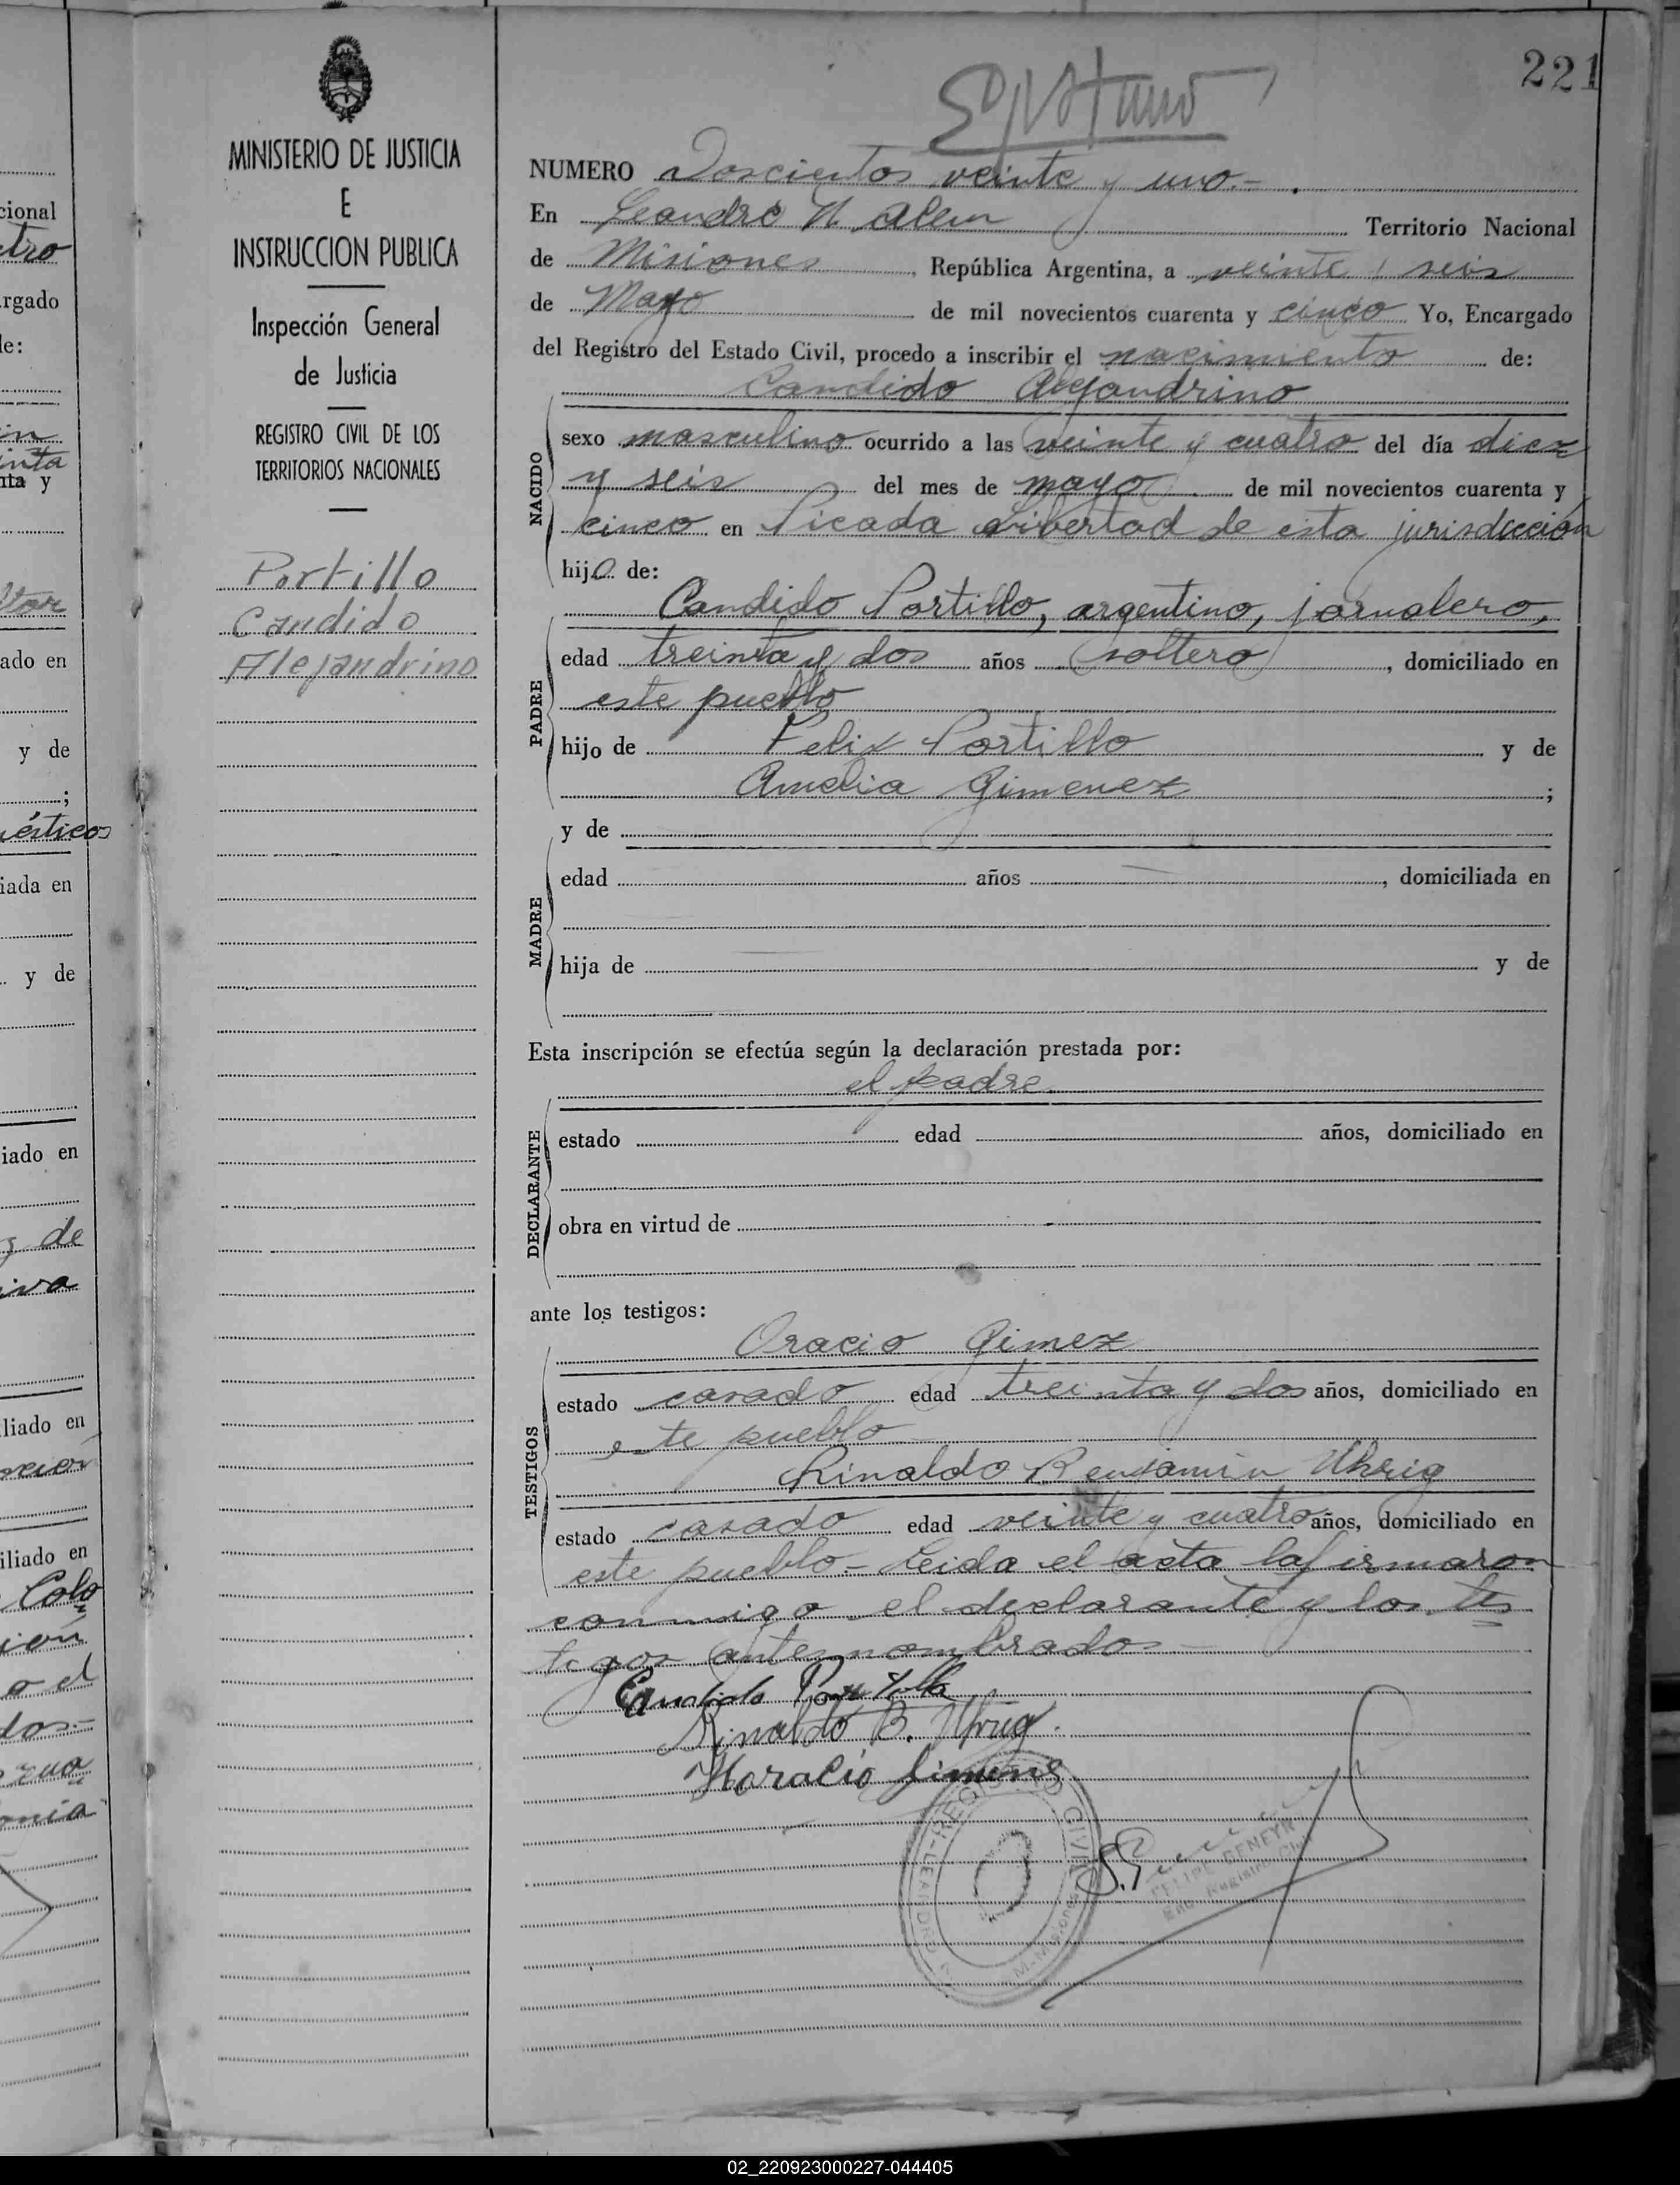 221
NUMERO Doscientos veinte y uno.-
En Leandro N. Alem Territorio Nacional
de Misiones, República Argentina, a veinte y seis
de Mayo de mil novecientos cuarenta y cinco Yo, Encargado
del Registro del Estado Civil, procedo a inscribir el nacimiento de:
Candido Alejandrino
NACIDO
sexo masculino ocurrido a las veinte y cuatro del día diez
y seis del mes de mayo de mil novecientos cuarenta y
cinco en Picada Libertad de esta jurisdiccion
hijo de:
PADRE
Candido Portillo, argentino, jornalero,
edad treinta y dos años soltero, domiciliado en
este pueblo
hijo de Felix Portillo y de
Amelia Gimenez;
MADRE
y de
edad años, domiciliada en
hija de y de
Esta inscripción se efectúa según la declaración prestada por:
el padre.
DECLARANTE
estado edad años, domiciliado en
obra en virtud de
ante los testigos:
TESTIGOS
Oracio Gimez
estado casado edad treinta y dos años, domiciliado en
este pueblo
Rinaldo Benjamin Uhrig
estado casado edad veinte y cuatro años, domiciliado en
este pueblo.- Leida el acta la firmaron
conmigo el declarante y los tes
tigos antes nombrados
Candido Portillo
Rinaldo B. Uhrig.
Horacio Jimens
REGISTRO CIVIL
LEANDRO N.
Misiones
FELIPE GENEYR
Enc. Registro Civil
MINISTERIO DE JUSTICIA
E
INSTRUCCION PUBLICA
Inspección General
de Justicia
REGISTRO CIVIL DE LOS
TERRITORIOS NACIONALES
Portillo
Candido
Alejandrino
cional
rgado
le:
inta
nta y
ado en
y de
;
iada en
y de
iado en
de
liado en
iliado en
Colo
02_220923000227-044405